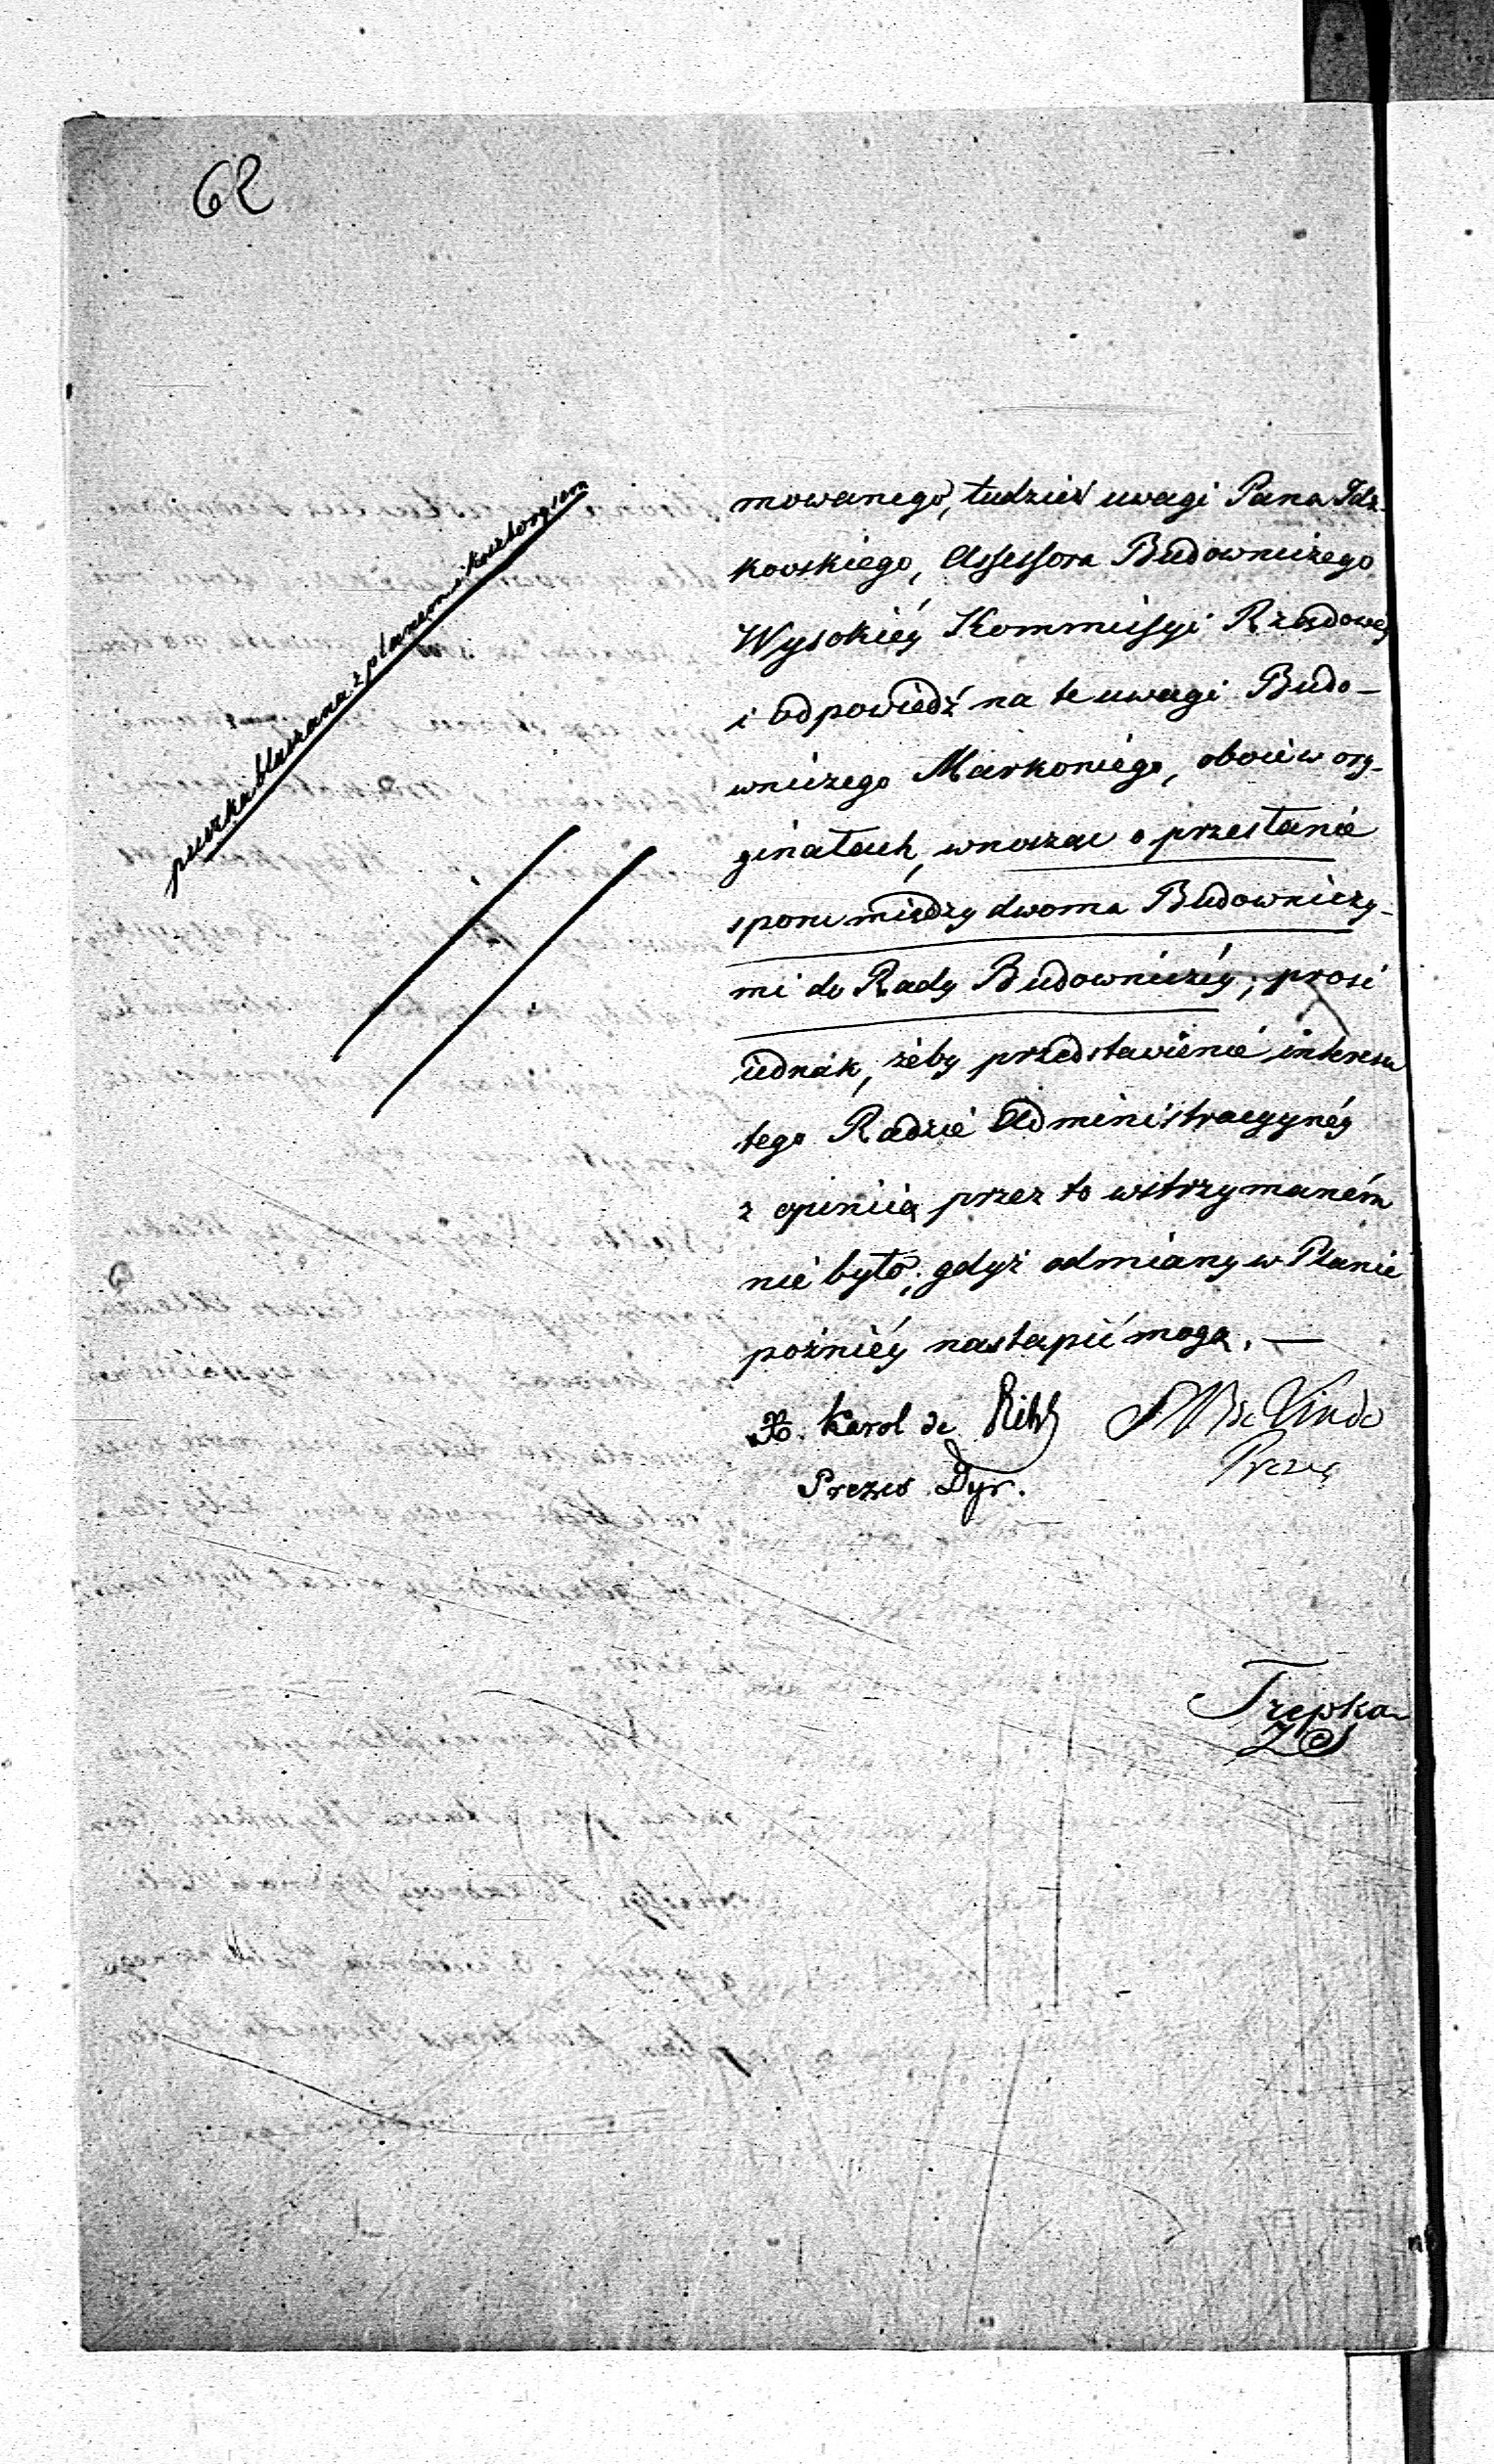 62
puszka blaszana z planem i kosztorysem
mowanego, tudzież uwagi Pana Idz-
kowskiego, Assessora Budowniczego
Wysokiéy Kommissyi Rządowéy
i odpowiedź na te uwagi Budo-
wniczego Markoniego, oboie w ory-
ginałach, wnosząc o przesłanie
sporu między dwoma Budowniczy-
mi do Rady Budowniczéy; prosi
iednak, żeby przedstawienie interesu
tego Radzie Administracyynéy
z opiniią przez to wstrzymaném
nie było; gdyż odmiany w Planie
poźniéy nastąpić mogą. —
X. Karol de
Prezes Dyr.
Prezes
Trepka
ZS